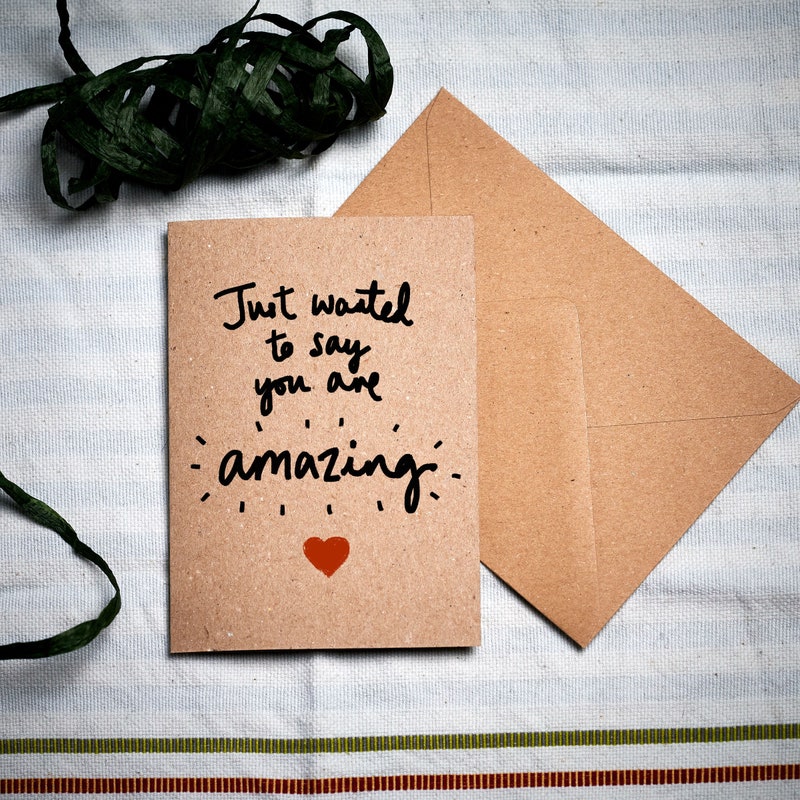 Just wanted
to say
you are
amazing